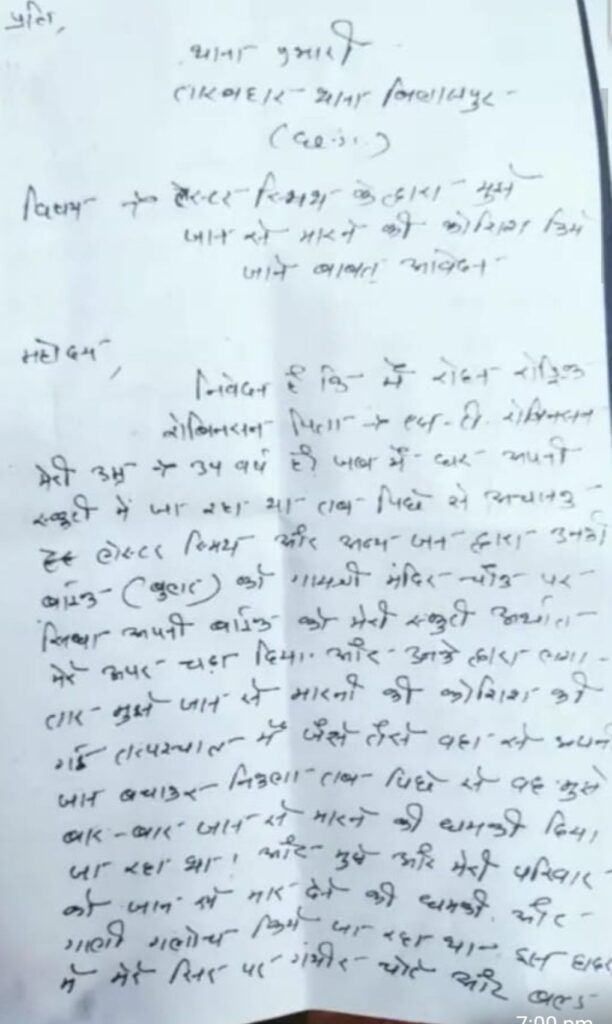 प्रति,
थाना प्रभारी
तारबहार थाना बिलासपुर
(छ.ग.)
विषय → लेस्टर स्मिथ के द्वारा मुझे
जान से मारने की कोशिश किये
जाने बाबत् आवेदन
महोदय,
निवेदन है कि मैं रोहन रोड्रिक
रोबिनसन पिता → एस.टी. रोबिनसन
मेरी उम्र → 34 वर्ष है। जब मैं घर अपनी
स्कुटी में जा रहा था तब पिछे से अचानक
लेस्टर स्मिथ और अन्य जन द्वारा उनकी
बाईक (बुलेट) को गायत्री मंदिर चौक पर
सिधा अपनी बाईक को मेरी स्कुटी अर्थात
मेरे उपर चढ़ा दिया और उनके द्वारा लगा-
तार मुझे जान से मारनी की कोशिश की
गई तत्पश्चात मैं जैसे तैसे वहा से अपने
जान बचाकर निकला तब पिछे से वह मुझे
बार-बार जान से मारने की धमकी दिया
जा रहा था। और मुझे और मेरी परिवार
को जान से मार देने की धमकी और
गाली गलोच किये जा रहा था इस
मे मेरे सिर पर गंभीर चोटे और
7:00 pm